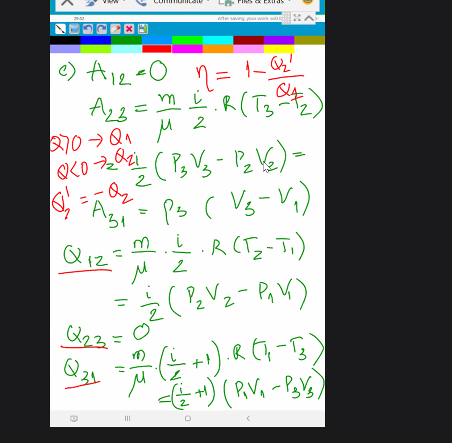 View
Communicate
Files & Extras
After saving, your work will b
c) A₁₂ = 0 η = 1 - Q₂'/Q₁
A₂₃ = m/μ i/2 · R(T₃ - T₂)
Q>0 → Q₁
Q<0 → Q₂
= i/2 (P₃V₃ - P₂V₂) =
Q₂' = -Q₂
A₃₁ = P₃ (V₃ - V₁)
Q₁₂ = m/μ · i/2 · R(T₂ - T₁)
= i/2 (P₂V₂ - P₁V₁)
Q₂₃ = 0
Q₃₁ = m/μ · (i/2 + 1) · R(T₁ - T₃)
= (i/2 + 1) (P₁V₁ - P₃V₃)